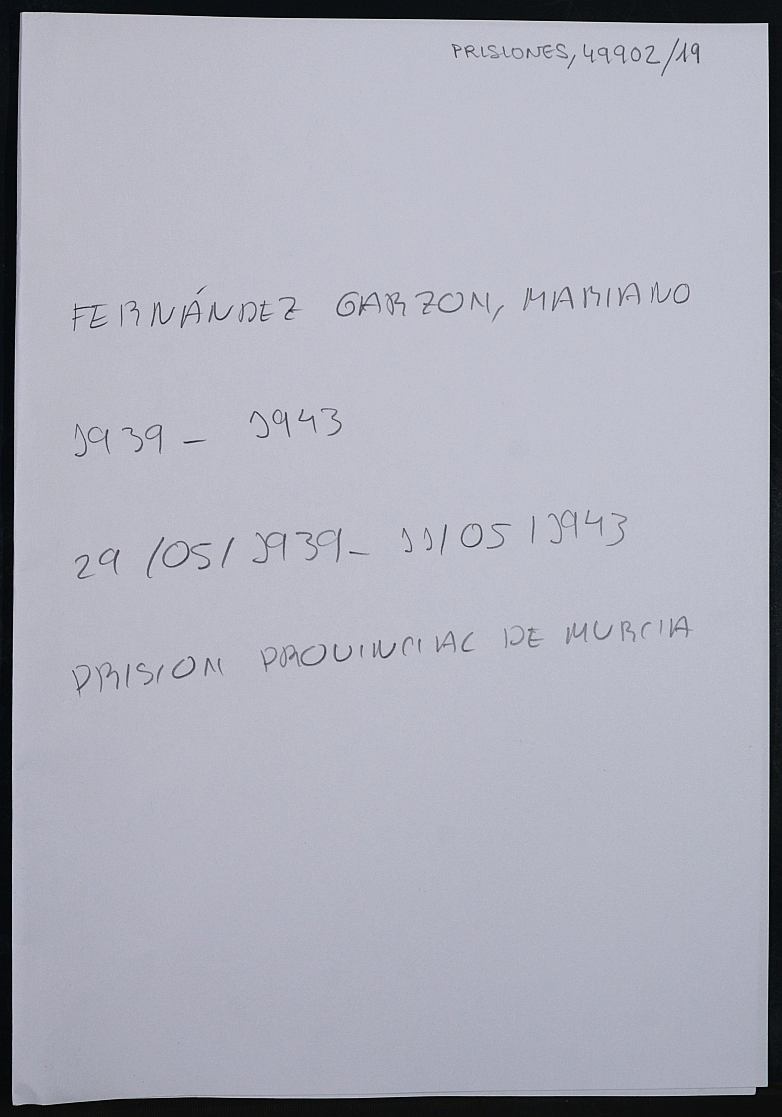 PRISIONES, 49902/19
FERNÁNDEZ GARZON, MARIANO
1939 - 1943
29/05/1939 - 11/05/1943
PRISION PROVINCIAL DE MURCIA